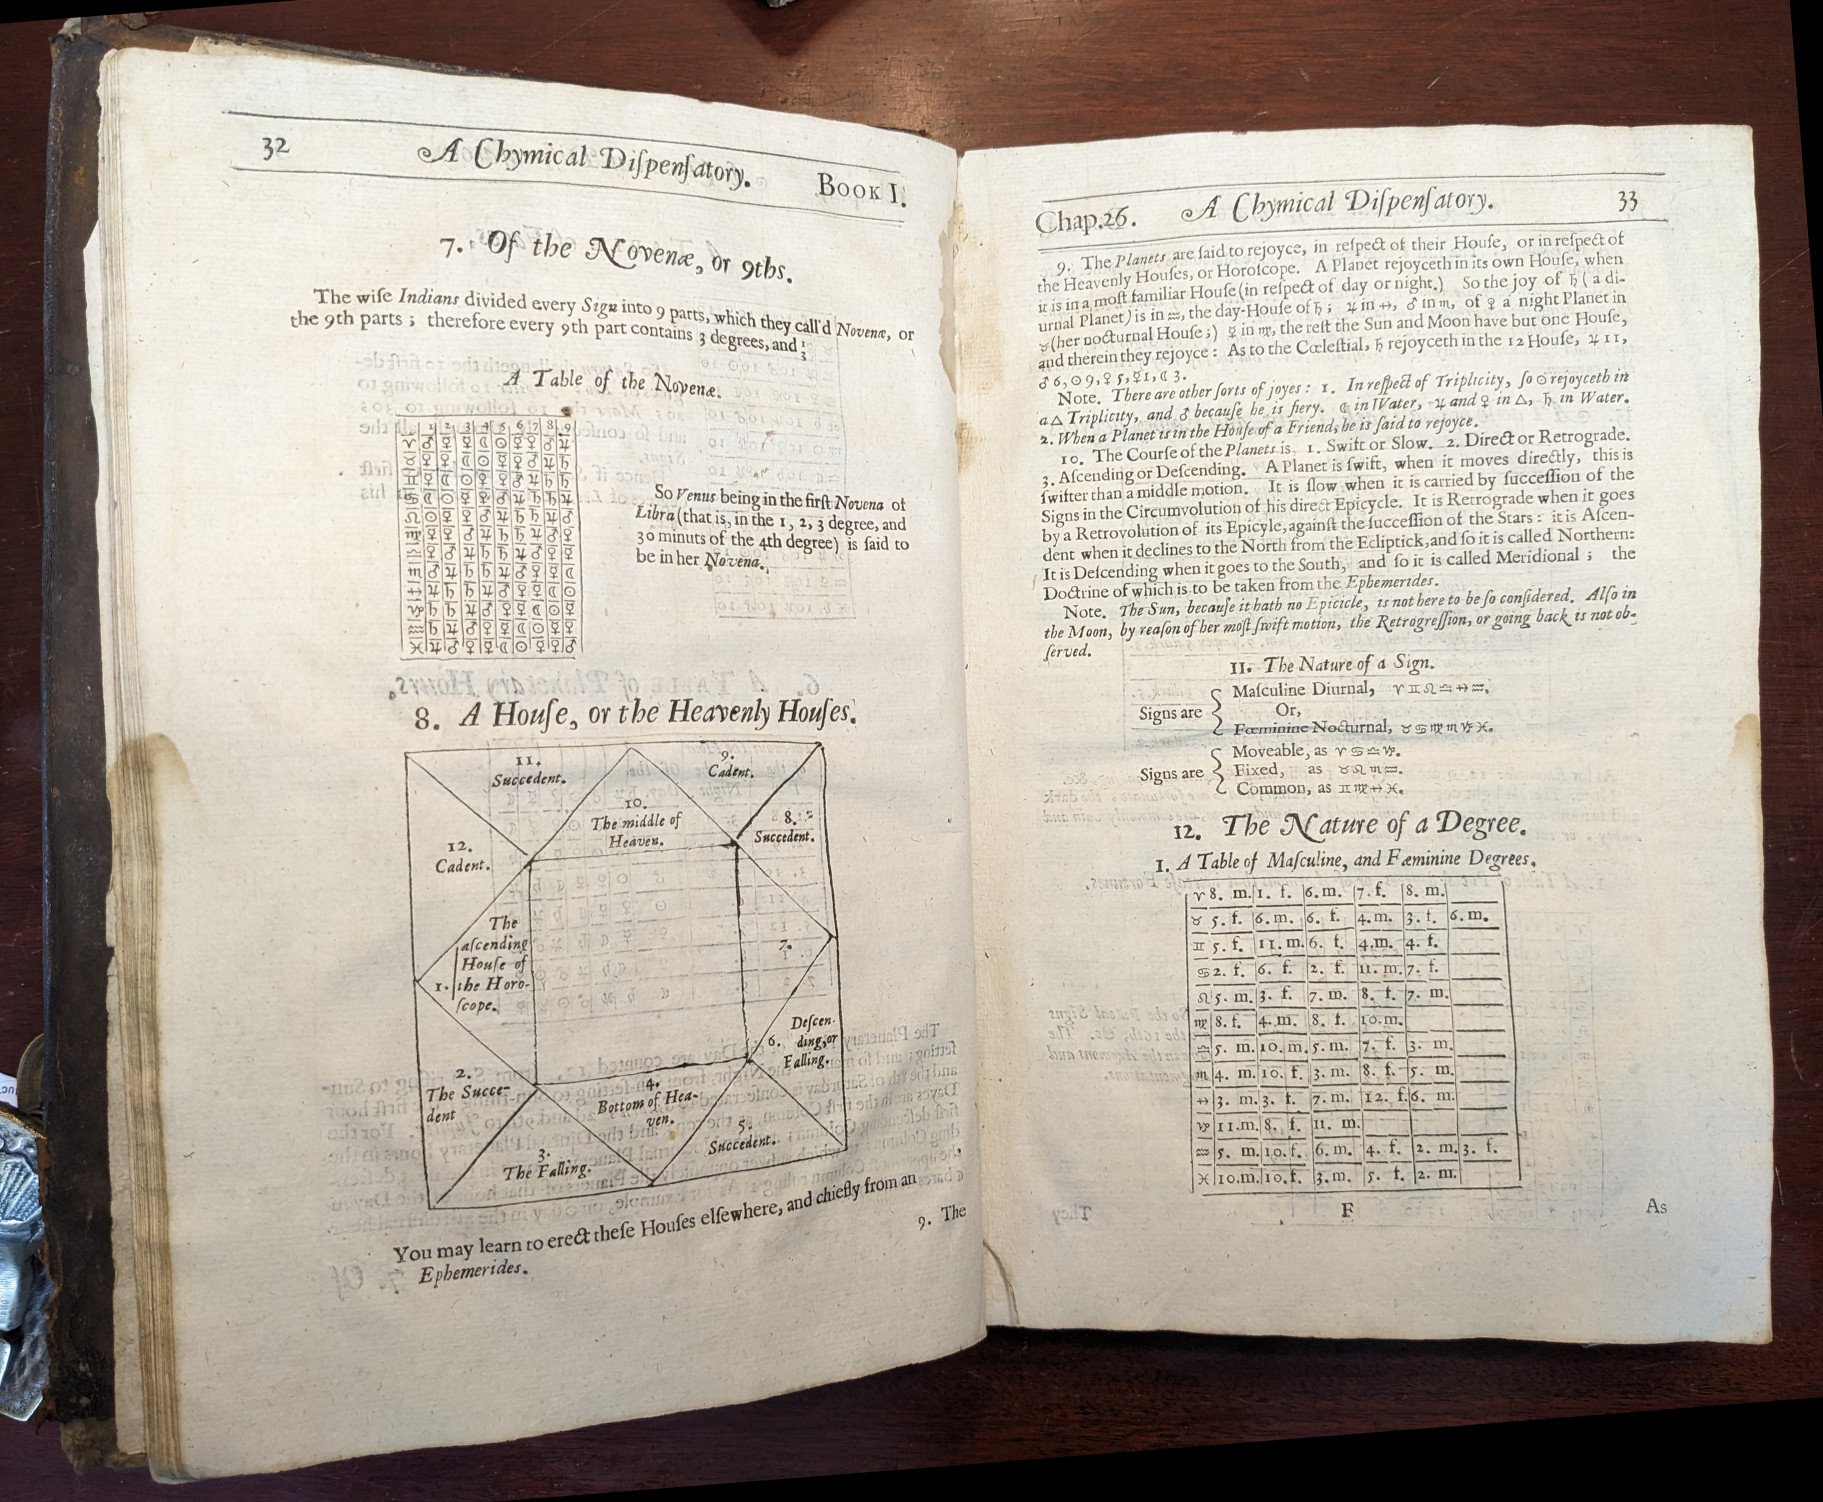 32 A Chymical Diſpenſatory. BOOK I.
7. Of the Novenæ, or 9ths.
The wiſe Indians divided every Sign into 9 parts, which they call'd Novenæ, or
the 9th parts; therefore every 9th part contains 3 degrees, and 1/3
A Table of the Novenæ.
1 2 3 4 5 6 7 8 9
♈
♉
♊
♋
♌
♍
♎
♏
♐
♑
♒
♓
So Venus being in the firſt Novena of
Libra (that is, in the 1, 2, 3 degree, and
30 minuts of the 4th degree) is ſaid to
be in her Novena.
8. A Houſe, or the Heavenly Houſes.
11.
Succedent.
9.
Cadent.
10.
The middle of
Heaven.
8.
Succedent.
12.
Cadent.
The
aſcending
Houſe of
1. the Horo-
ſcope.
7.
Deſcen-
6. ding, or
Falling.
2.
The Succe-
dent
4.
Bottom of Hea-
ven.
5.
Succedent.
3.
The Falling.
You may learn to erect theſe Houſes elſewhere, and chiefly from an
Ephemerides.
9. The
Chap. 26. A Chymical Diſpenſatory. 33
9. The Planets are ſaid to rejoyce, in reſpect of their Houſe, or in reſpect of
the Heavenly Houſes, or Horoſcope. A Planet rejoyceth in its own Houſe, when
it is in a moſt familiar Houſe (in reſpect of day or night.) So the joy of ♄ ( a di-
urnal Planet) is in ♒, the day-Houſe of ♄; ♃ in ♐, ♂ in ♏, of ♀ a night Planet in
♉ (her nocturnal Houſe;) ☿ in ♍, the reſt the Sun and Moon have but one Houſe,
and therein they rejoyce: As to the Cœleſtial, ♄ rejoyceth in the 12 Houſe, ♃ 11,
♂ 6, ☉ 9, ♀ 5, ☿ 1, ☾ 3.
Note. There are other ſorts of joyes: 1. In reſpect of Triplicity, ſo ☉ rejoyceth in
a △ Triplicity, and ♂ becauſe he is fiery. ☾ in Water, ♃ and ♀ in △, ♄ in Water.
2. When a Planet is in the Houſe of a Friend, he is ſaid to rejoyce.
10. The Courſe of the Planets is 1. Swift or Slow. 2. Direct or Retrograde.
3. Aſcending or Deſcending. A Planet is ſwift, when it moves directly, this is
ſwifter than a middle motion. It is ſlow when it is carried by ſucceſſion of the
Signs in the Circumvolution of his direct Epicycle. It is Retrograde when it goes
by a Retrovolution of its Epicyle, againſt the ſucceſſion of the Stars: it is Aſcen-
dent when it declines to the North from the Ecliptick, and ſo it is called Northern:
It is Deſcending when it goes to the South, and ſo it is called Meridional; the
Doctrine of which is to be taken from the Ephemerides.
Note. The Sun, becauſe it hath no Epicicle, is not here to be ſo conſidered. Alſo in
the Moon, by reaſon of her moſt ſwift motion, the Retrogreſſion, or going back is not ob-
ſerved.
11. The Nature of a Sign.
Maſculine Diurnal, ♈ ♊ ♌ ♎ ♐ ♒.
Signs are { Or,
Fœminine Nocturnal, ♉ ♋ ♍ ♏ ♑ ♓.
Moveable, as ♈ ♋ ♎ ♑.
Signs are { Fixed, as ♉ ♌ ♏ ♒.
Common, as ♊ ♍ ♐ ♓.
12. The Nature of a Degree.
1. A Table of Maſculine, and Fæminine Degrees.
♈ 8. m. 1. f. 6. m. 7. f. 8. m.
♉ 5. f. 6. m. 6. f. 4. m. 3. f. 6. m.
♊ 5. f. 11. m. 6. f. 4. m. 4. f.
♋ 2. f. 6. f. 2. f. 11. m. 7. f.
♌ 5. m. 3. f. 7. m. 8. f. 7. m.
♍ 8. f. 4. m. 8. f. 10. m.
♎ 5. m. 10. m. 5. m. 7. f. 3. m.
♏ 4. m. 10. f. 3. m. 8. f. 5. m.
♐ 3. m. 3. f. 7. m. 12. f. 6. m.
♑ 11. m. 8. f. 11. m.
♒ 5. m. 10. f. 6. m. 4. f. 2. m. 3. f.
♓ 10. m. 10. f. 3. m. 5. f. 2. m.
F As